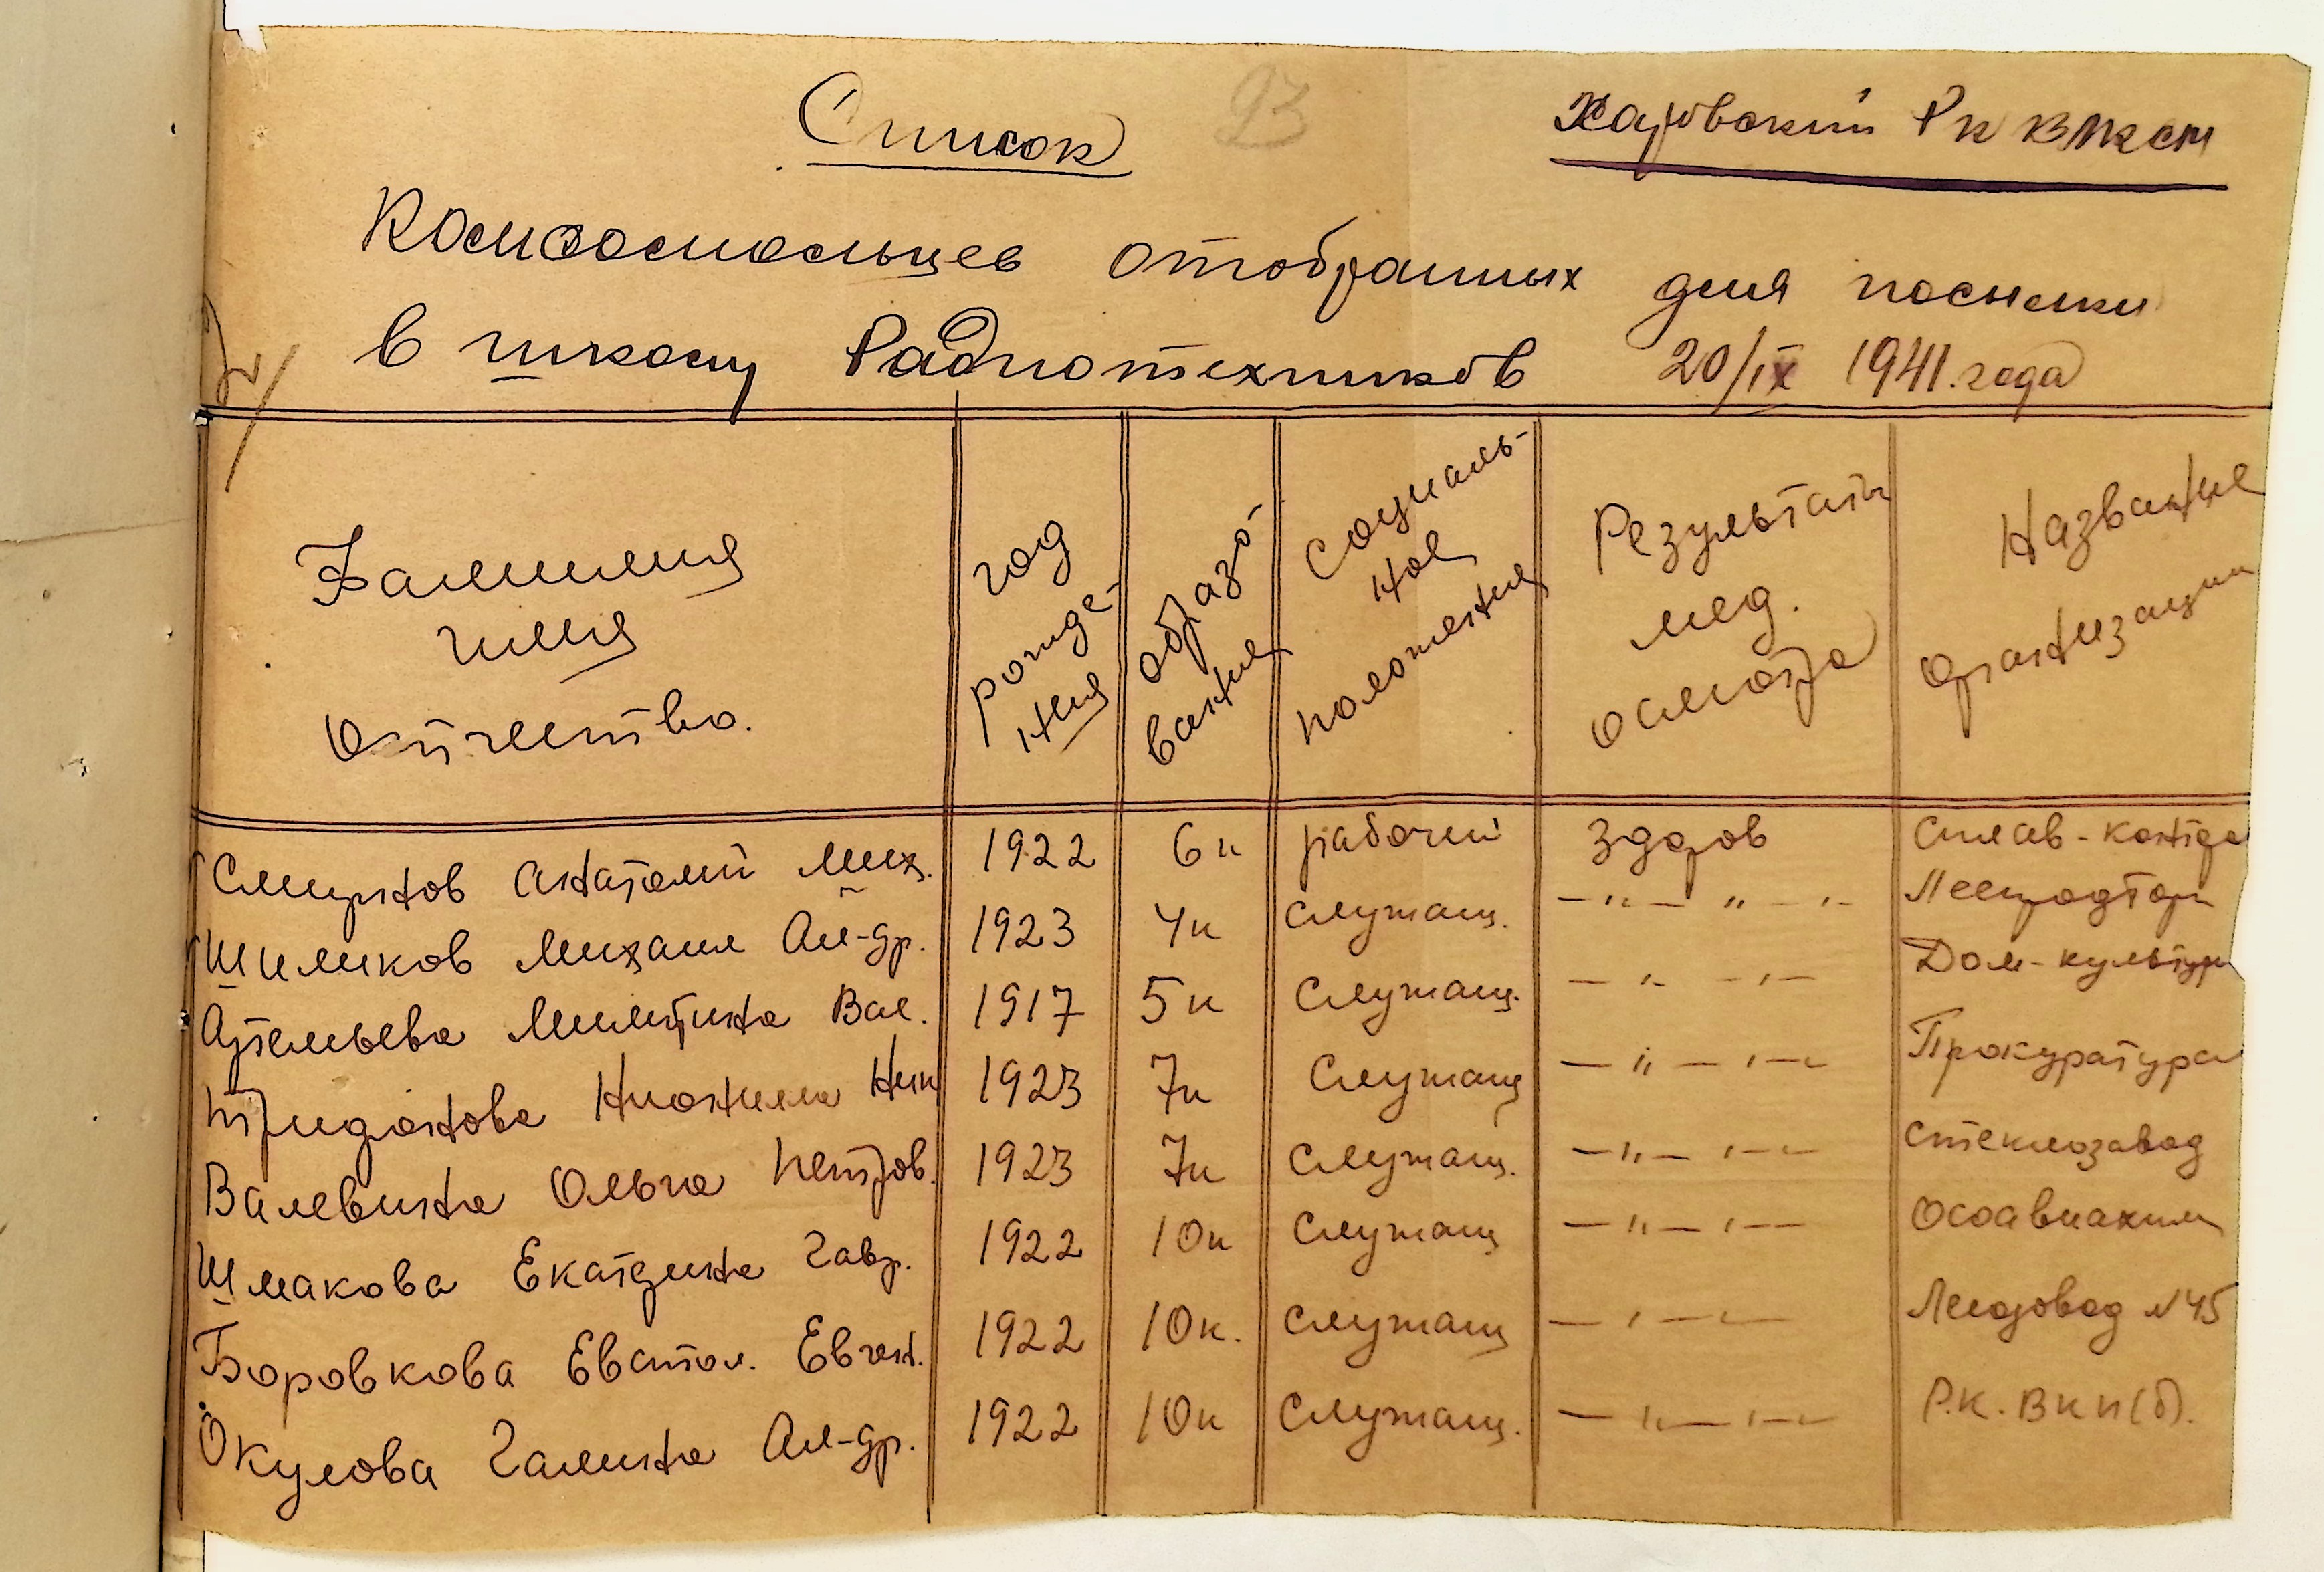 Список
93
Харовский РК ВЛКСМ
Комсомольцев отобранных для посылки
в школу Радиотехников 20/IX 1941.года
Фамилия имя отчество. год рожде-ния образо-вание социаль-ное положения Результаты мед. осмотра Название организации
Смирнов Анатолий Мих. 1922 6к рабочий Здоров Сплав-контора
Шиликов Михаил Ал-др. 1923 4к Служащ. —"— " — "- Леспродторг
Артемьева Милитина Вал. 1917 5к Служащ. — " — " — Дом-культуры
Нионила Ник 1923 7к Служащ — " — " — Прокуратура
Валевина Ольга Петров. 1923 7к Служащ. — " — " — стеклозавод
Шмакова Екатерина Гавр. 1922 10к Служащ — " — " — Осоавиахим
Боровкова Евстол. Евген. 1922 10к. Служащ — " — — №45
Окулова Галина Ал-др. 1922 10к Служащ. — " — " — Р.К. ВКП(б).